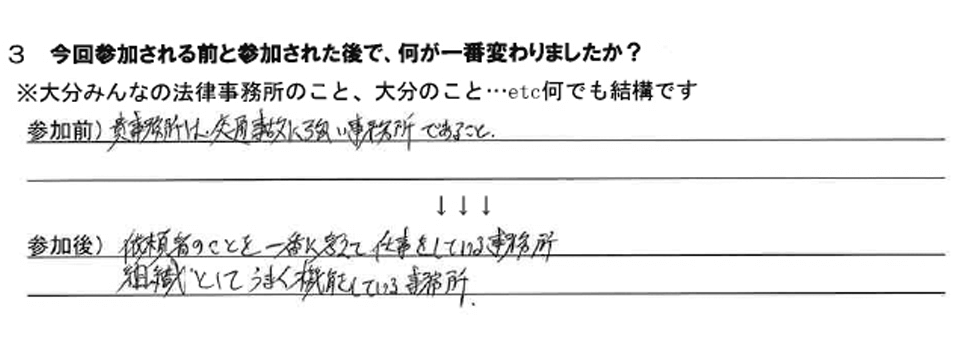 3 今回参加される前と参加された後で、何が一番変わりましたか？
※大分みんなの法律事務所のこと、大分のこと…etc何でも結構です
参加前）貴事務所は、交通事故に強い事務所であること.
↓↓↓
参加後）依頼者のことを一番に考えて仕事をしている事務所
組織としてうまく機能している事務所.